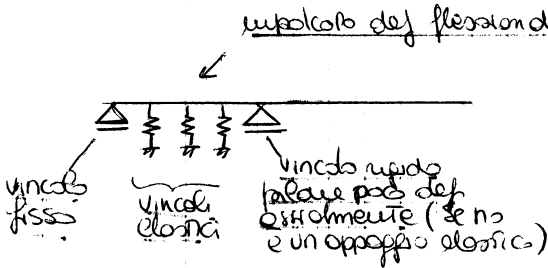 impalcato def flessional
vincolo
fisso
vincoli
elastici
vincolo rigido
pilone poco def
assialmente (se no
è un appoggio elastico)